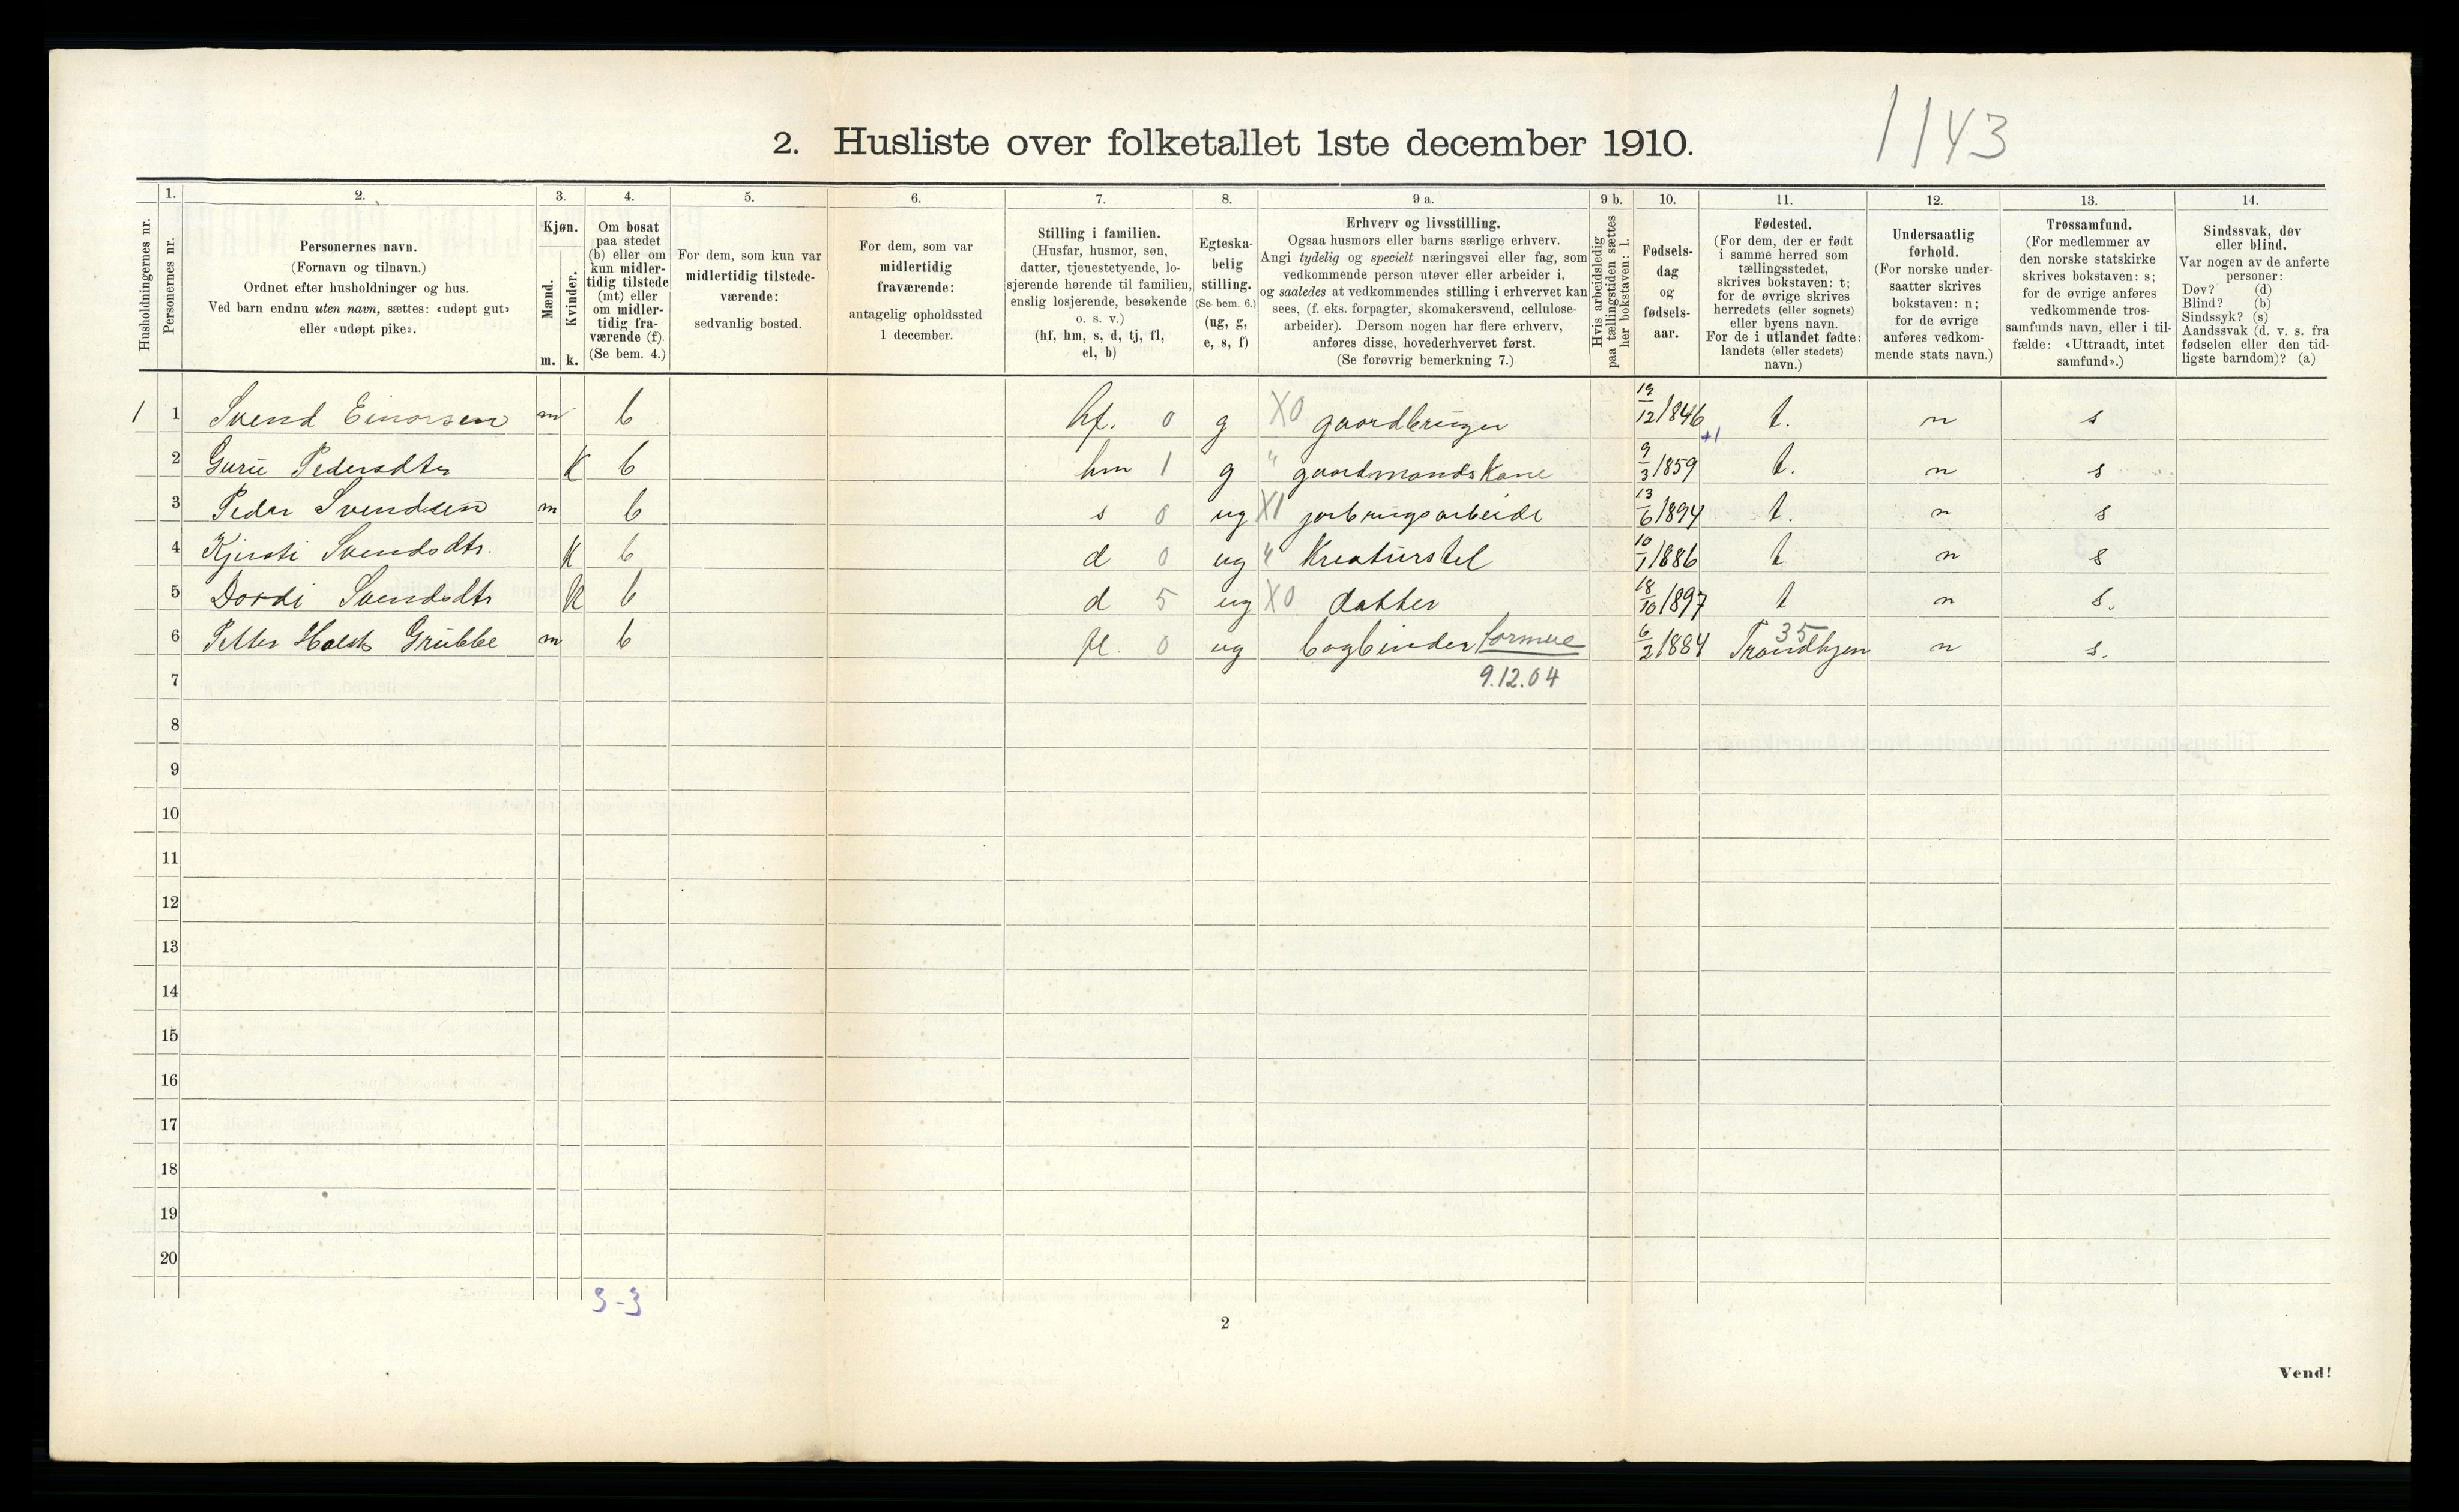 1143
2. Husliste over folketallet 1ste december 1910.
Husholdningernes nr.
1.
Personernes nr.
2.
Personernes navn.
(Fornavn og tilnavn.)
Ordnet efter husholdninger og hus.
Ved barn endnu uten navn, sættes: «udøpt gut»
eller «udøpt pike».
3.
Kjøn.
Mænd.
Kvinder.
m. k.
4.
Om bosat
paa stedet
(b) eller om
kun midler-
tidig tilstede
(mt) eller
om midler-
tidig fra-
værende (f).
(Se bem. 4.)
5.
For dem, som kun var
midlertidig tilstede-
værende:
sedvanlig bosted.
6.
For dem, som var
midlertidig
fraværende:
antagelig opholdssted
1 december.
7.
Stilling i familien.
(Husfar, husmor, søn,
datter, tjenestetyende, lo-
sjerende hørende til familien,
enslig losjerende, besøkende
o. s. v.)
(hf, hm, s, d, tj, fl,
el, b)
8.
Egteska-
belig
stilling.
(Se bem. 6.)
(ug, g,
e, s, f)
9 a.
Erhverv og livsstilling.
Ogsaa husmors eller barns særlige erhverv.
Angi tydelig og specielt næringsvei eller fag, som
vedkommende person utøver eller arbeider i,
og saaledes at vedkommendes stilling i erhvervet kan
sees, (f. eks. forpagter, skomakersvend, cellulose-
arbeider). Dersom nogen har flere erhverv,
anføres disse, hovederhvervet først.
(Se forøvrig bemerkning 7.)
9 b.
Hvis arbeidsledig
paa tællingstiden sættes
her bokstaven: l.
10.
Fødsels-
dag
og
fødsels-
aar.
11.
Fødested.
(For dem, der er født
i samme herred som
tællingsstedet,
skrives bokstaven: t;
for de øvrige skrives
herredets (eller sognets)
eller byens navn.
For de i utlandet fødte:
landets (eller stedets)
navn.)
12.
Undersaatlig
forhold.
(For norske under-
saatter skrives
bokstaven: n;
for de øvrige
anføres vedkom-
mende stats navn.)
13.
Trossamfund.
(For medlemmer av
den norske statskirke
skrives bokstaven: s;
for de øvrige anføres
vedkommende tros-
samfunds navn, eller i til-
fælde: «Uttraadt, intet
samfund».)
14.
Sindssvak, døv
eller blind.
Var nogen av de anførte
personer:
Døv? (d)
Blind? (b)
Sindssyk? (s)
Aandssvak (d. v. s. fra
fødselen eller den tid-
ligste barndom)? (a)
1 1 Svend Einarsen m b hf. 0 g X0 gaardbruger 19/12 1846 t. n s
+1
2 Guru Pedersdtr K b hm 1 g " gaardmandskone 9/3 1859 t. n s
3 Peder Svendsen m b s 0 ug X1 jorbrugsarbeide 13/6 1894 t. n s
4 Kjersti Svendsdtr. K b d 0 ug " Kreaturstel 10/1 1886 t n s
5 Dordi Svendsdtr K b d 5 ug X0 datter 18/10 1897 t n s.
6 Petter Holck Grubbe m b fl. 0 ug bogbinder formue 6/2 1884 Trondhjem 35 n s.
7 9.12.04
8
9
10
11
12
13
14
15
16
17
18
19
20
3-3
2
Vend!